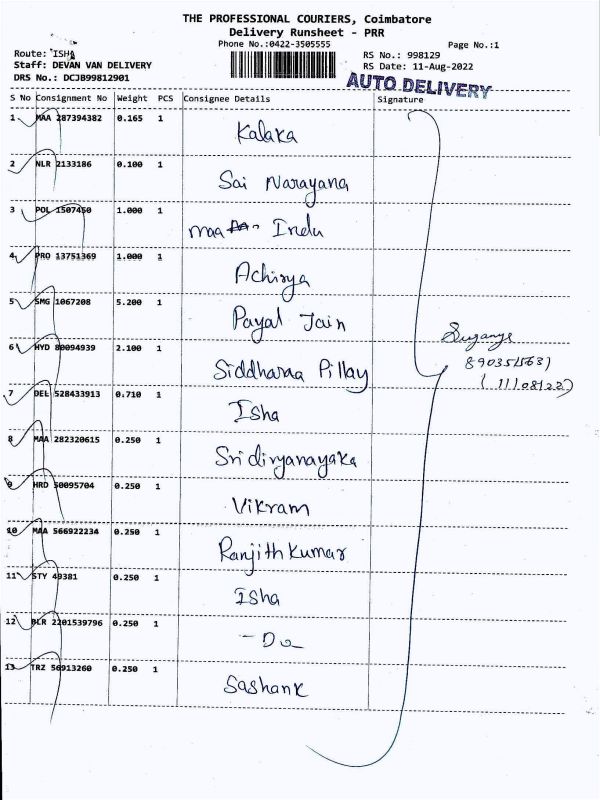 THE PROFESSIONAL COURIERS, Coimbatore
Delivery Runsheet - PRR
Phone No.:0422-3505555
Page No.:1
Route: ISHA
RS No.: 998129
Staff: DEVAN VAN DELIVERY
RS Date: 11-Aug-2022
DRS No.: DCJB99812901
AUTO DELIVERY
S No Consignment No Weight PCS Consignee Details Signature
1 MAA 287394382 0.165 1 Kalaka
2 NLR 2133186 0.100 1 Sai Narayana
3 POL 1507450 1.000 1 maa Indu
4 PRO 13751369 1.000 1 Achirya
5 SMG 1067208 5.200 1 Payal Jain
6 HYD 80094939 2.100 1 Siddharaa Pillay
7 DEL 528433913 0.710 1 Isha
8 MAA 282320615 0.250 1 Sridivyanayaka
9 HRD 50095704 0.250 1 Vikram
10 MAA 566922234 0.250 1 Ranjith Kumar
11 STY 49381 0.250 1 Isha
12 BLR 2201539796 0.250 1 - Do -
13 TRZ 56913260 0.250 1 Sashank
(11/08/22)